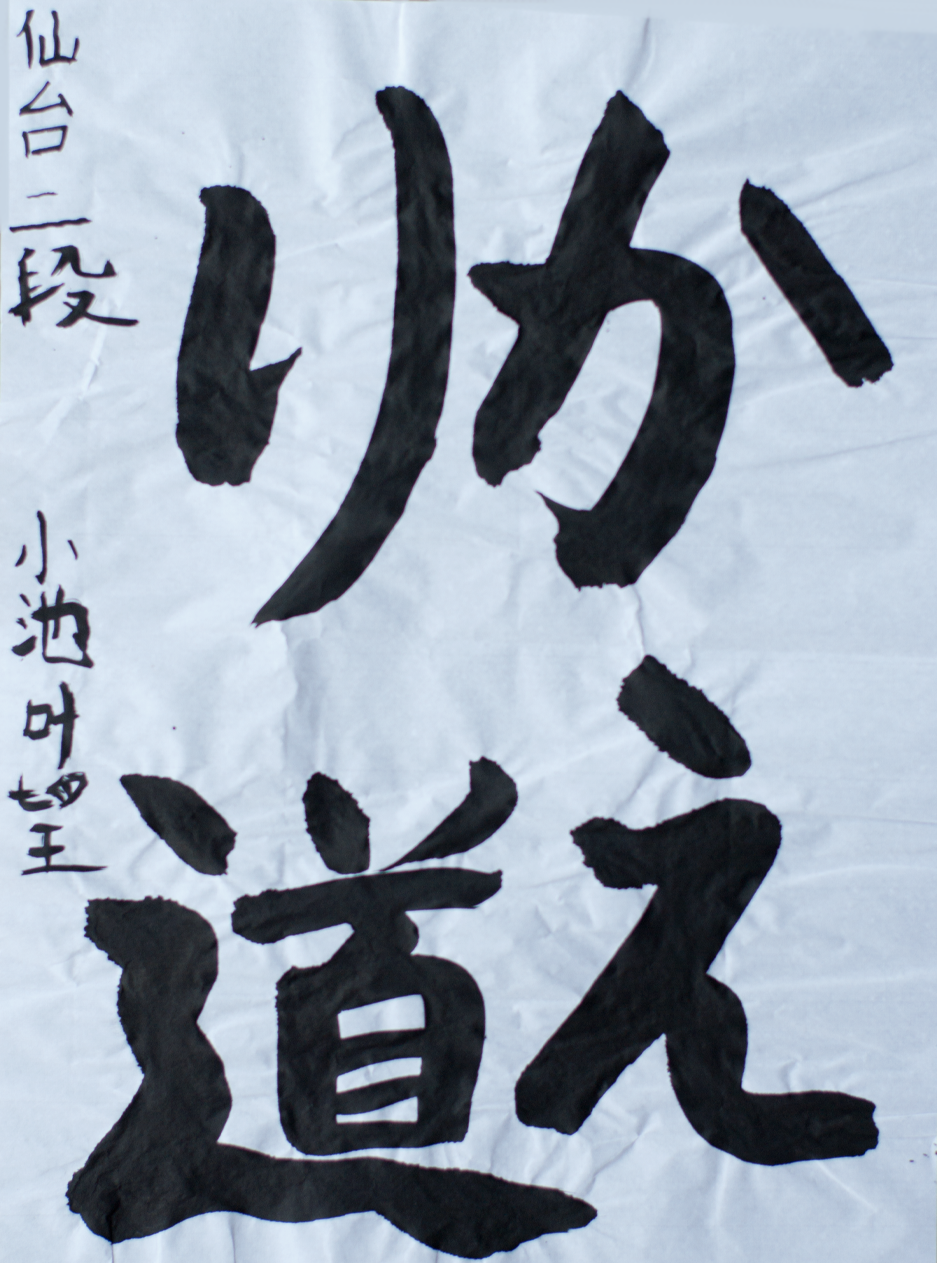 かえ
り道
仙台二段 小池叶望